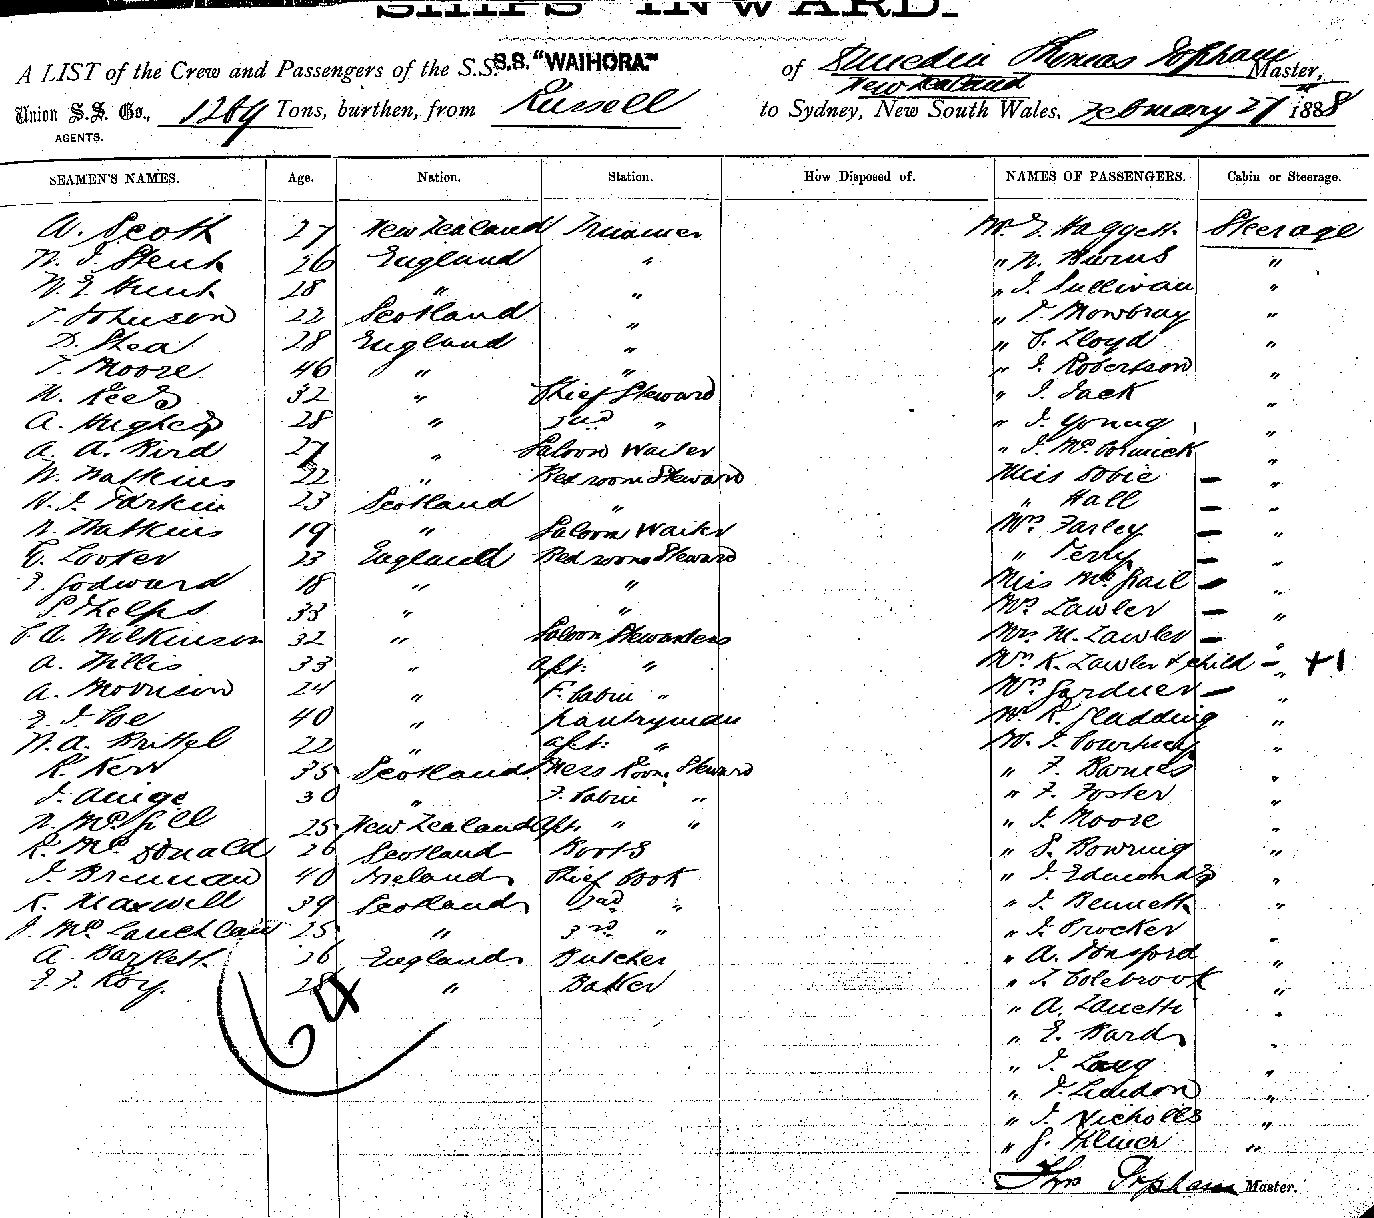 SHIPS INWARD.
A LIST of the Crew and Passengers of the S.S. S.S. "WAIHORA" of Dunedin Thomas Popham Master,
New Zealand
Union S.S. Co., 1269 Tons, burthen, from Russell to Sydney, New South Wales, February 27 1888
AGENTS.
SEAMEN'S NAMES. Age. Nation. Station. How Disposed of. NAMES OF PASSENGERS. Cabin or Steerage.
A. Scott 27 New Zealand Trimmer Mr E. Haggett Steerage
26 England " " W. Burns "
Hunt 28 " " " J. Sullivan "
Johnson 22 Scotland " " T. Mowbray "
D. Shea 28 England " " C. Lloyd "
T. Moore 46 " " " J. Robertson "
32 " Chief Steward " J. Jack "
A. Hughes 28 " 2nd " " J. Young "
A. A. Bird 27 " Saloon Waiter " J. McCormick "
W. Watkins 22 " Bed room Steward Miss Dobie - "
H. J. Larkin 23 Scotland " " Hall - "
W. Watkins 19 " Saloon Waiter Mrs Farley - "
C. Looker 23 England Bed room Steward " -
E. Godward 18 " " Miss McGrail - "
Phelps 33 " " Mrs Lawler - "
C. A. Wilkinson 32 " Saloon Stewardess Mrs M. Lawler - "
A. Willis 33 " aft: " Mrs K. Lawler & child - " +1
A. Morrison 24 " F. Cabin " Mrs Gardner - "
E. J. Coe 40 " Pantryman Mr R. Gladding "
W. A. Brittel 22 " aft: " Mr J. Courtney "
R. Kerr 35 Scotland Mess Room Steward " F. Barnes "
30 " F. Cabin " " F. Foster "
McGill 25 New Zealand Aft. " " " J. Moore "
R. McDonald 26 Scotland Boots " S. Bowring "
J. Brennan 40 Ireland Chief Cook " J. Edmonds "
R. Maxwell 39 Scotland 2nd " " J. Bennett "
J. McLauchlan 25 " 3rd " " J. Crocker "
A. Bartlett 26 England Butcher " A. Bonsford "
E. F. Roy. 28 " Baker " T. Colebrook "
64
" A. Zanetti "
" E. Bard "
" J. Lang "
" "
" J. Nicholls "
" G. "
Thos Popham Master.